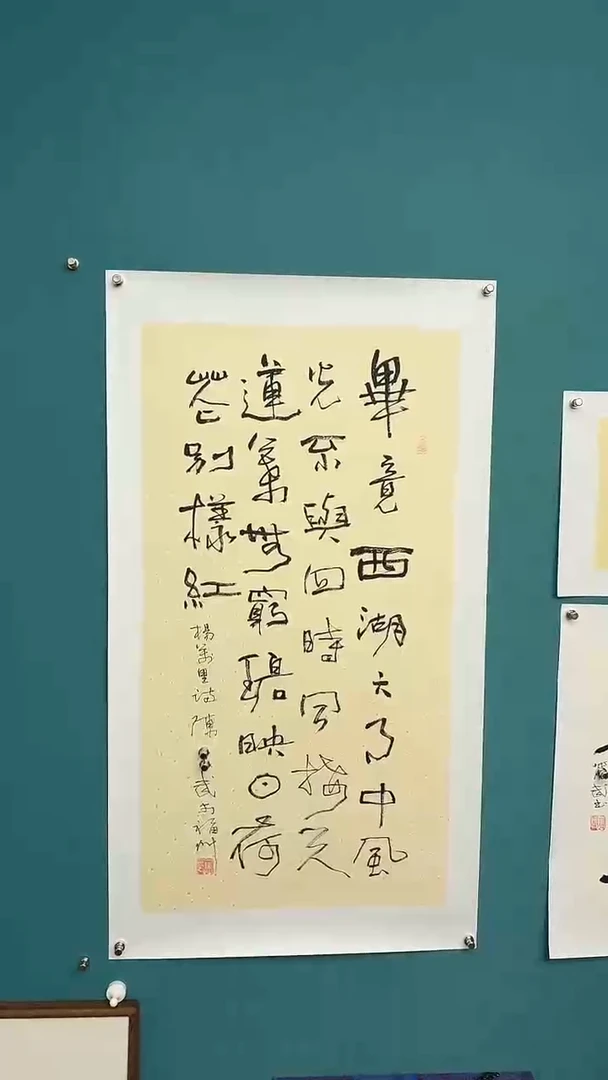 畢竟西湖六月中風
光不與四時同接天
蓮葉無窮碧映日荷
花別樣紅
楊萬里詩 陳 武 福州